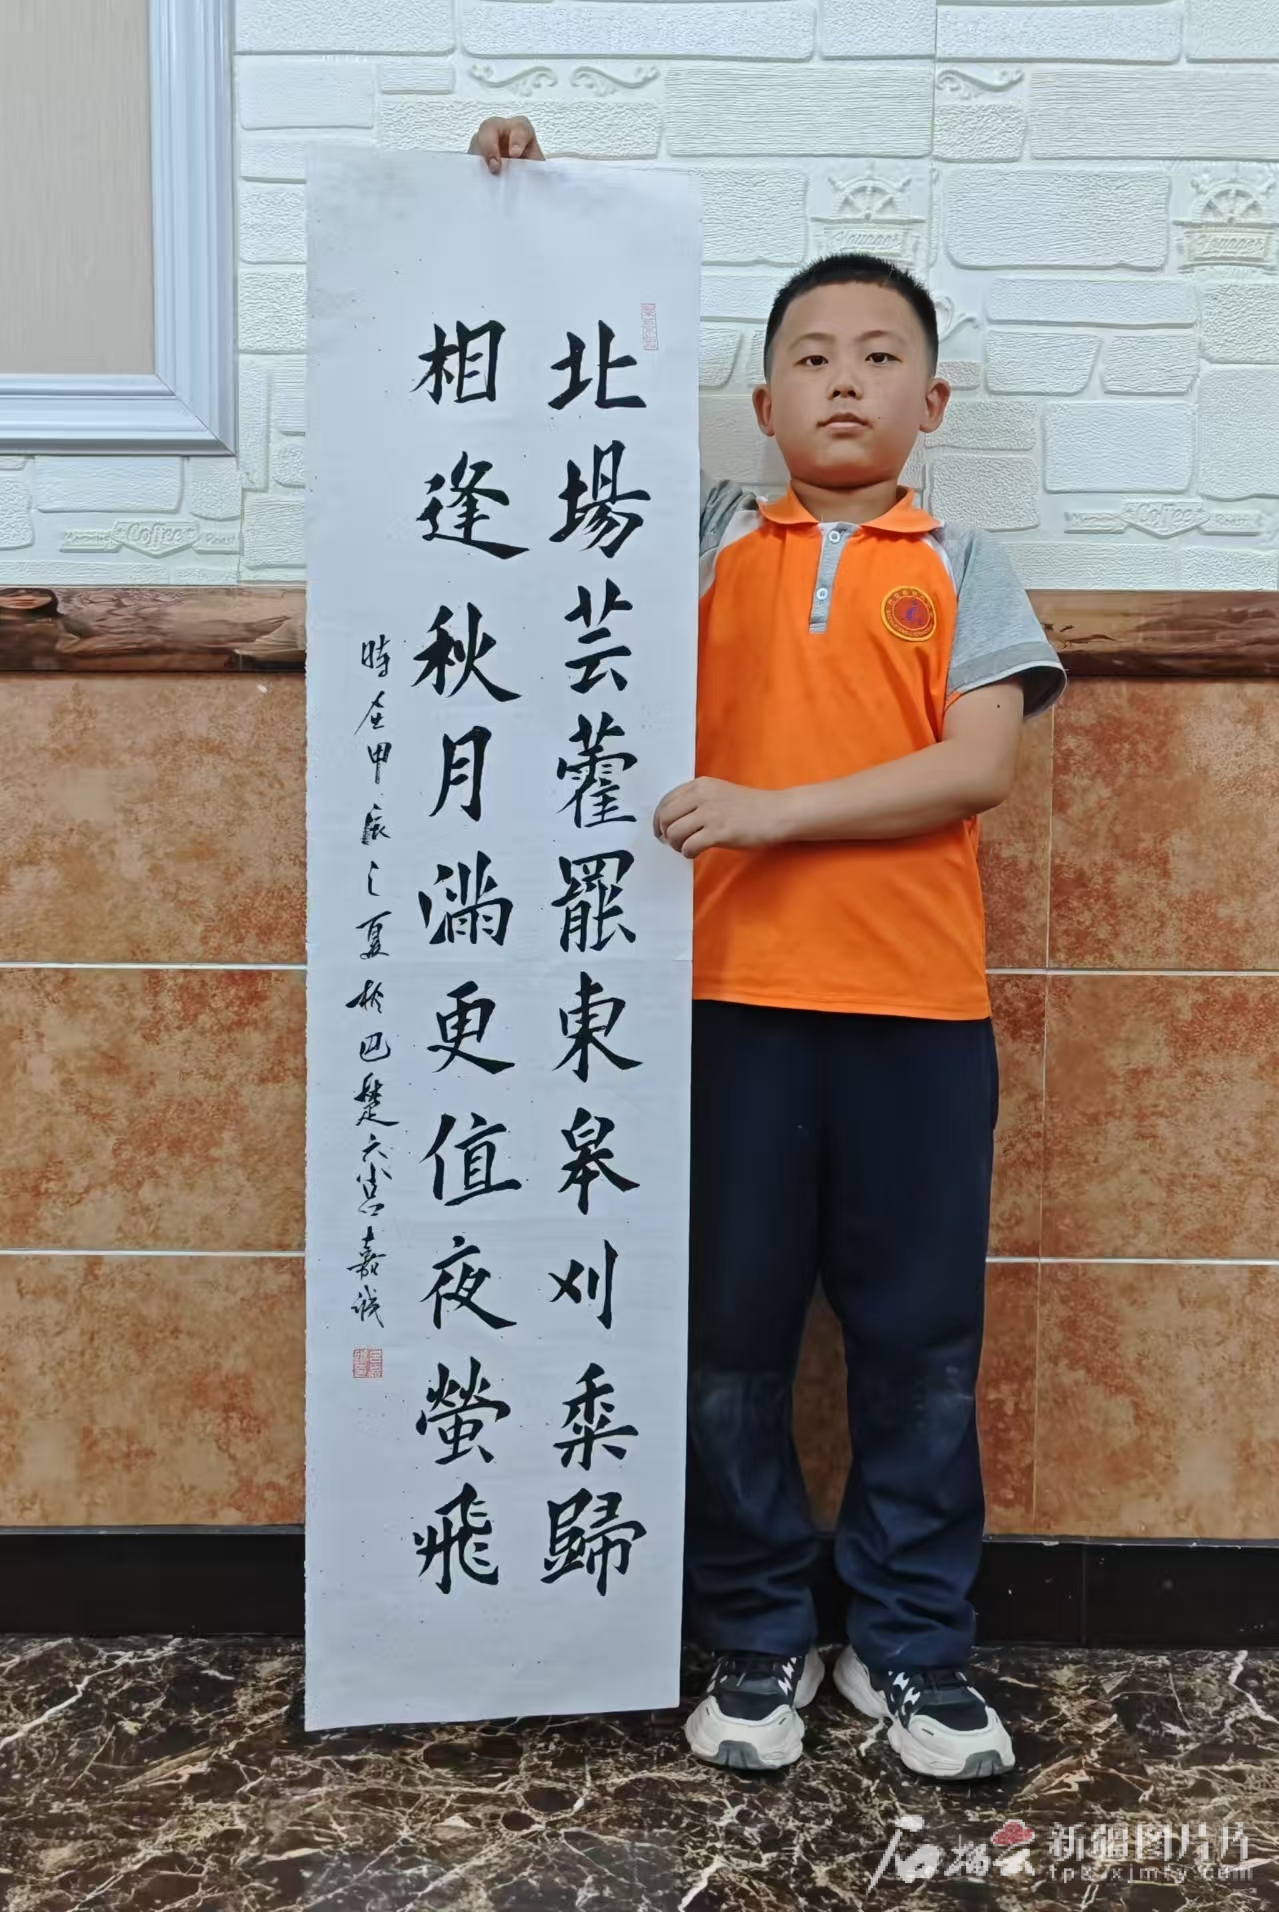 北場芸藿罷東皋刈黍歸
相逢秋月滿更值夜螢飛
時在甲辰之夏於巴楚六小呂嘉誠
Voyager
Voyager
Coffee
石榴云
新疆图片库
tpk.xjmty.com